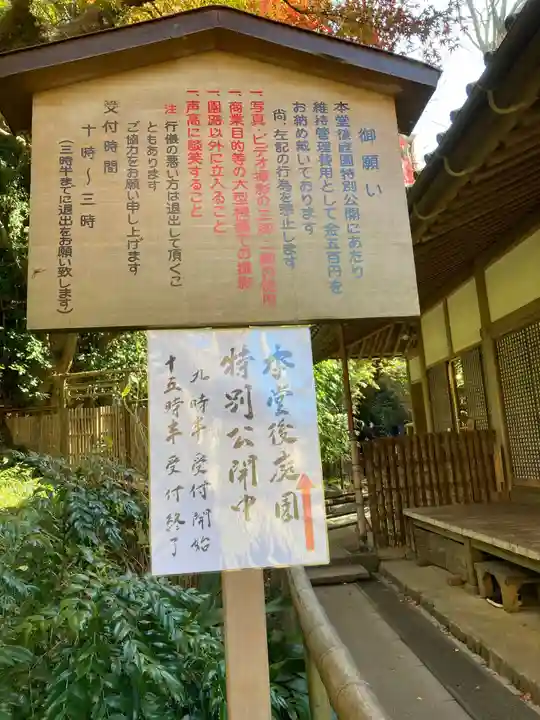 御願い
本堂後庭園特別公開にあたり
維持管理費用として金五百円を
お納め戴いております
尚、左記の行為を禁止します
一、写真・ビデオ撮影の三脚・一脚の使用
一、商業目的等の大型機器での撮影
一、園路以外に立入ること
一、声高に談笑すること
注 行儀の悪い方は退出して頂くこ
ともあります
ご協力をお願い申し上げます
受付時間
十時～三時
(三時半までに退出をお願い致します)
本堂後庭園
特別公開中
九時半 受付開始
十五時半 受付終了